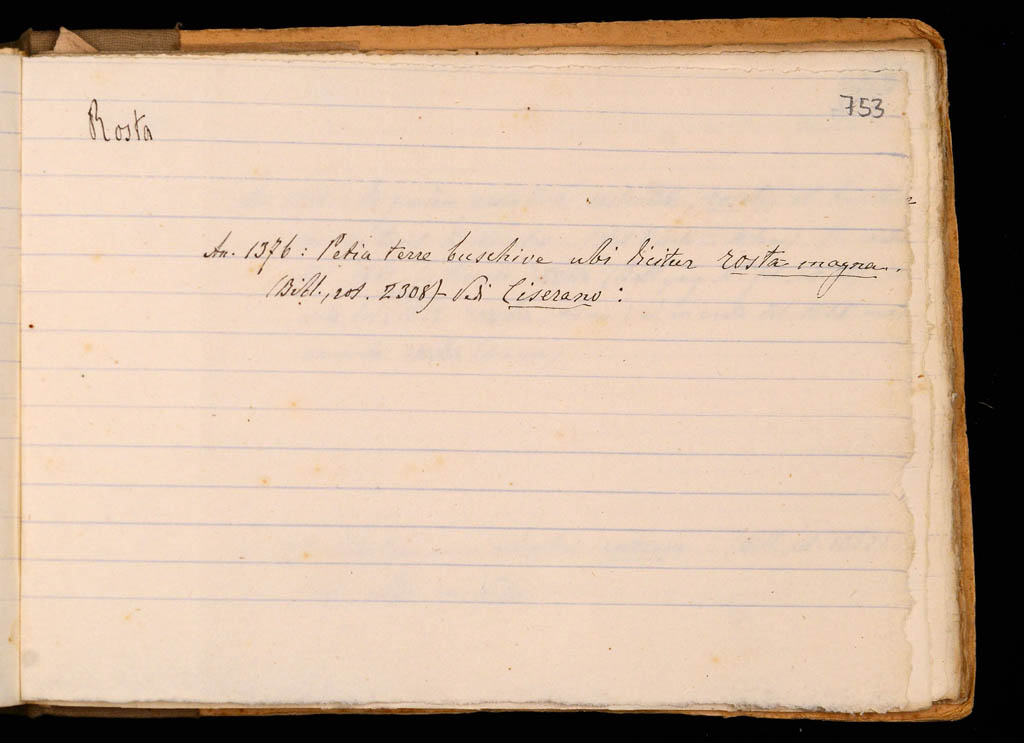 753
Rosta
An. 1376: Petia terre buschive ubi dicitur rosta magna.
(Bibl., rot. 2308) - Vedi Ciserano: